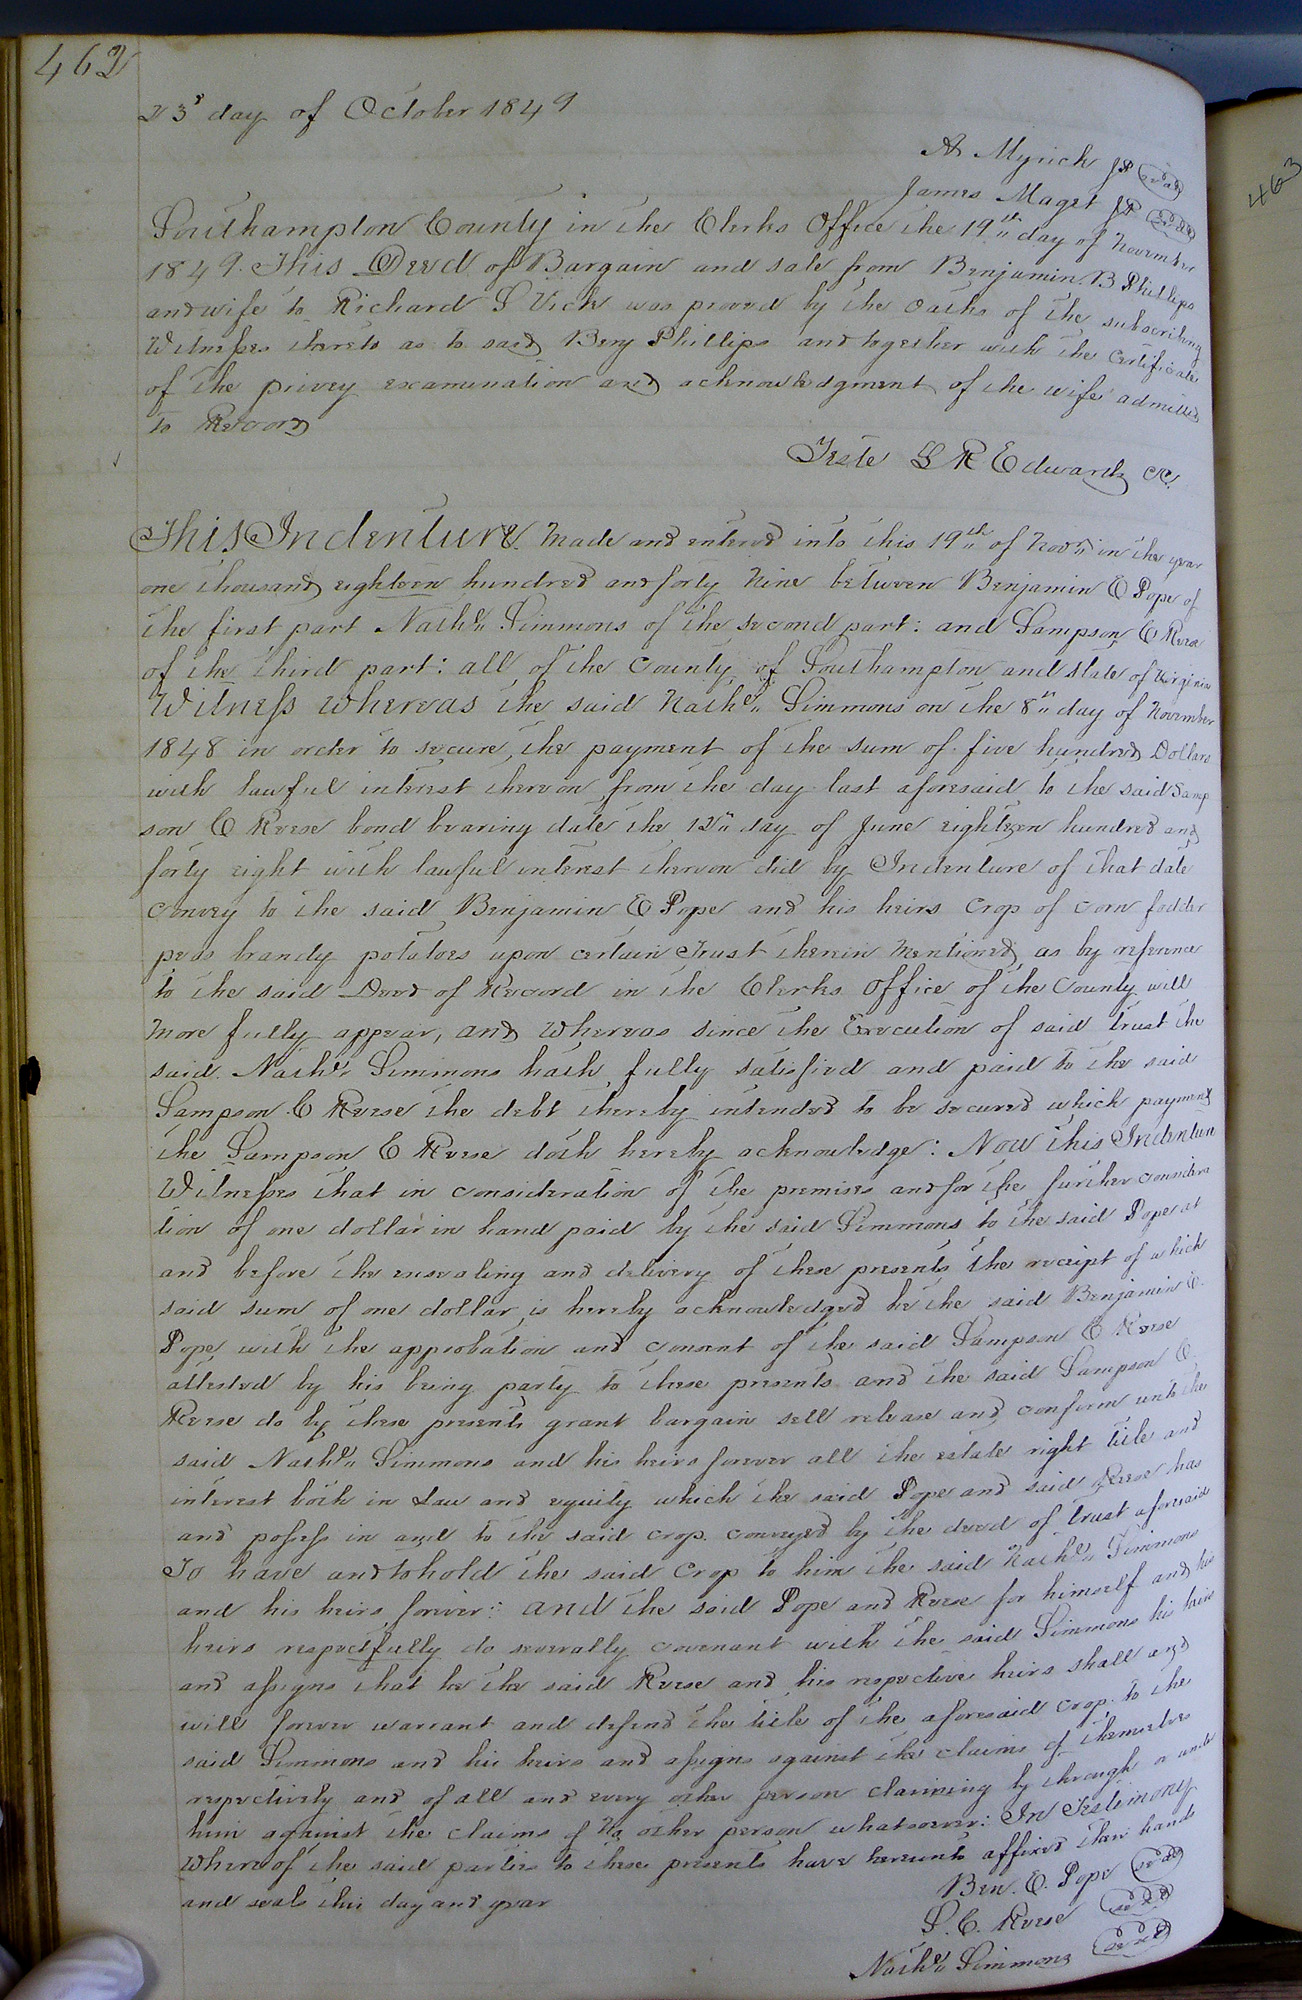 462
23d day of October 1849
A Myrick JP seal
James Maget JP seal
Southampton County in the Clerks Office the 19th day of November
1849. This Deed of Bargain and sale from Benjamin B Phillips
and wife to Richard S Vick was proved by the Oaths of the subscribing
Witnesses thereto as to said Benj Phillips and together with the Certificate
of the privey examination and acknowledgment of the wife admitted
to Record
Teste L R Edwards CC.
This Indenture Made and entered into this 19th of Novr in the year
one thousand eighteen hundred and forty Nine between Benjamin E Pope of
the first part Nathl Simmons of the second part: and Sampson C Reese
of the third part: all of the County of Southampton and state of Virginia
Witness Whereas the said Nathl Simmons on the 8th day of November
1848 in order to secure the payment of the sum of five hundred Dollars
with lawful interest thereon from the day last aforesaid to the said Samp
son C Reese bond bearing date the 12th day of June eighteen hundred and
forty eight with lawful interest thereon did by Indenture of that date
convey to the said Benjamin E Pope and his heirs Crop of corn fodder
peas brandy potatoes upon certain Trust therein Mentioned, as by reference
to the said Deed of Record in the Clerks Office of the County will
More fully appear, and Whereas since the Execution of said trust the
said Nathl Simmons hath fully satisfied and paid to the said
Sampson C Reese the debt thereby intended to be secured which payment
the Sampson C Reese doth hereby acknowledge: Now this Indenture
Witnesses that in consideration of the premises and for the further considera
tion of one dollar in hand paid by the said Simmons to the said Pope at
and before the ensealing and delivery of these presents the receipt of which
said sum of one dollar is hereby acknowledged he the said Benjamin E.
Pope with the approbation and consent of the said Sampson C Reese
attested by his being party to these presents and the said Sampson C.
Reese do by these presents grant bargain sell release and confirm unto the
said Nathl Simmons and his heirs forever all the estate right title and
interest both in Law and equity which the said Pope and said Reese has
and possess in and to the said crop conveyed by the deed of trust aforesaid
To have and to hold the said Crop to him the said Nathl Simmons
and his heirs forever: and the said Pope and Reese for himself and his
heirs respectfully do severally covenant with the said Simmons his heirs
and assigns that he the said Reese and his respective heirs shall and
will forever warrant and defend the title of the aforesaid crop to the
said Simmons and his heirs and assigns against the claims of themselves
respectively and of all and every other person claiming by through or under
him against the claims of No other person whatsoever: In Testimony
Whereof the said parties to these presents have hereunto affixed their hands
and seals this day and year
Ben. E. Pope seal
S. C. Reese seal
Nathl Simmons seal
463